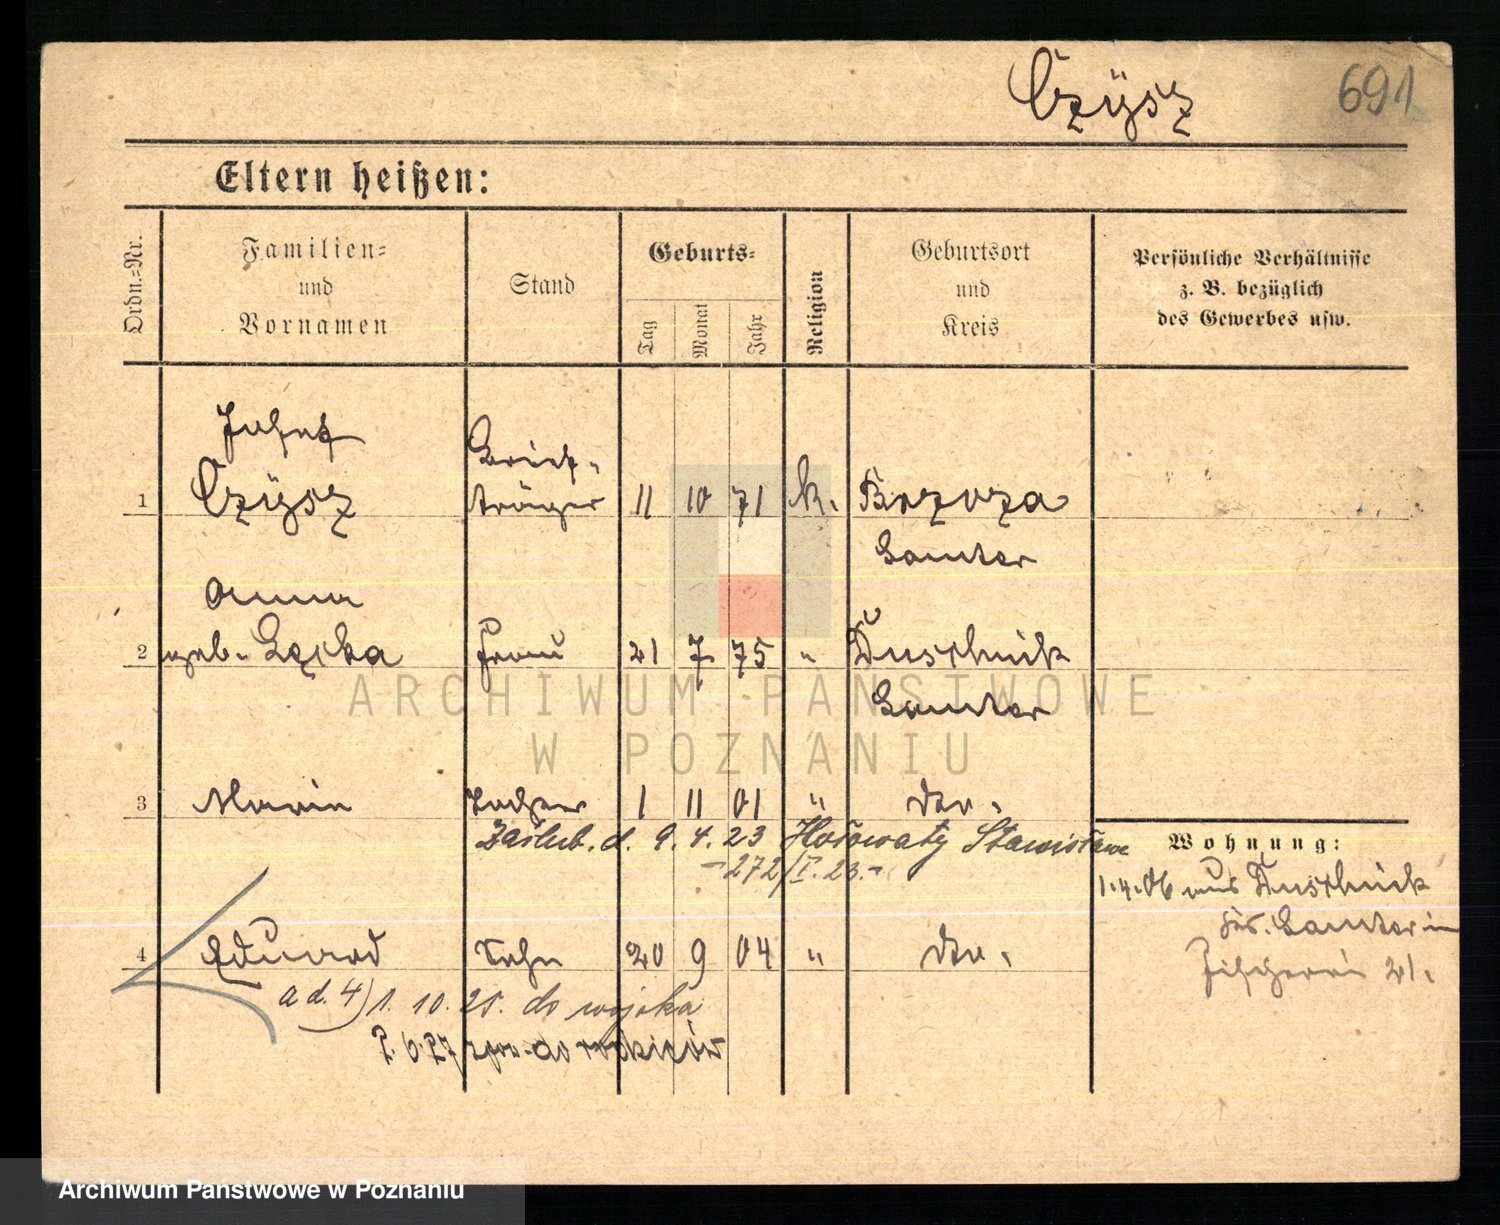 Czÿsz
691
Eltern heißen:
Ordn.-Nr.
Familien-
und
Vornamen
Stand
Geburts-
Tag
Monat
Jahr
Religion
Geburtsort
und
Kreis
Persönliche Verhältnisse
z. B. bezüglich
des Gewerbes usw.
Josef
Brief-
1 Czÿsz träger 11 10 71 k. Brzoza
Samter
Anna
2 geb. Frau 21 7 75 " Duschnik
Samter
3 Maria Tochter 1 11 01 " dto.
zaślub. d. 9.4.23 Stanisław
-272/I.23.-
Wohnung:
1.4.06 aus Duschnik
Krs. Samter in
Fischerei 21.
4 Eduard Sohn 20 9 04 " dto.
ad. 4) 1.10.25. do wojska
2.6.27 do rodziców
ARCHIWUM PAŃSTWOWE
W POZNANIU
Archiwum Państwowe w Poznaniu